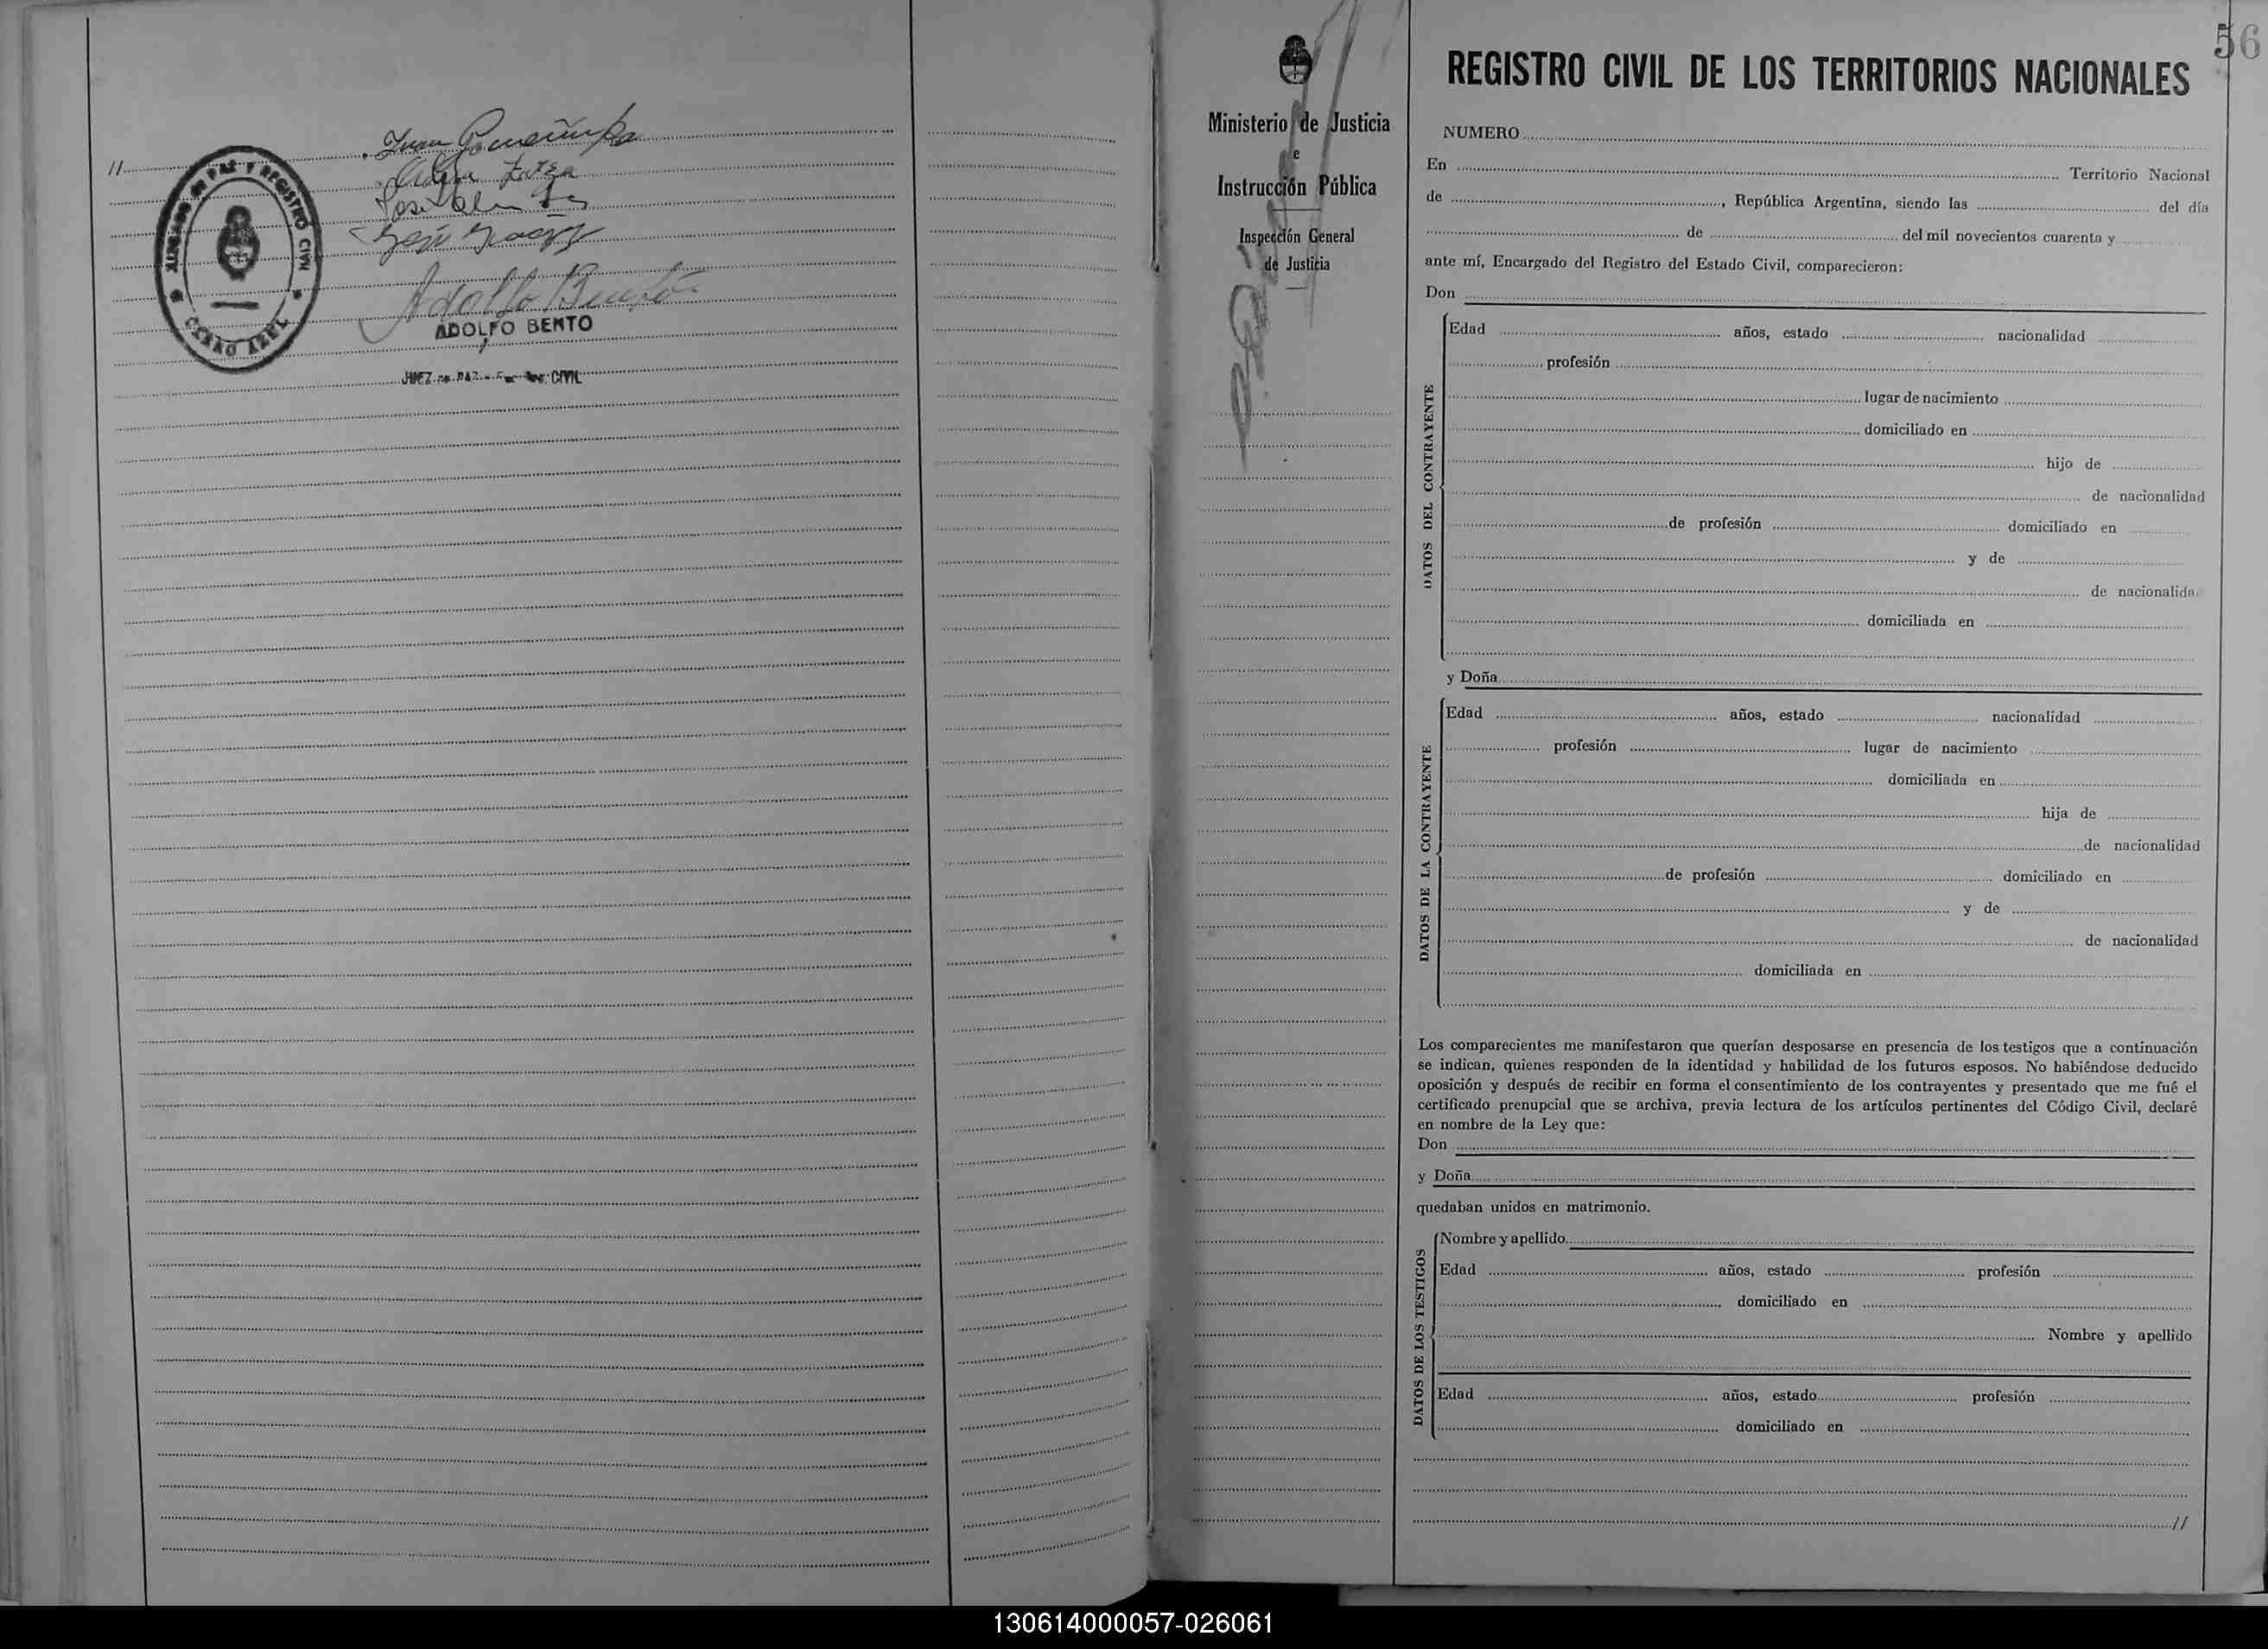 //
JUZGADO DE PAZ Y REGISTRO CIVIL
CERRO AZUL
Juan
Adolfo Bento
ADOLFO BENTO
JUEZ DE PAZ - Enc. Reg. CIVIL
Ministerio de Justicia
e
Instrucción Pública
Inspección General
de Justicia
56
REGISTRO CIVIL DE LOS TERRITORIOS NACIONALES
NUMERO
En Territorio Nacional
de , República Argentina, siendo las del día
de del mil novecientos cuarenta y
ante mí, Encargado del Registro del Estado Civil, comparecieron:
Don
DATOS DEL CONTRAYENTE
Edad años, estado nacionalidad
profesión
lugar de nacimiento
domiciliado en
hijo de
de nacionalidad
de profesión domiciliado en
y de
de nacionalida
domiciliada en
y Doña
DATOS DE LA CONTRAYENTE
Edad años, estado nacionalidad
profesión lugar de nacimiento
domiciliada en
hija de
de nacionalidad
de profesión domiciliado en
y de
de nacionalidad
domiciliada en
Los comparecientes me manifestaron que querían desposarse en presencia de los testigos que a continuación
se indican, quienes responden de la identidad y habilidad de los futuros esposos. No habiéndose deducido
oposición y después de recibir en forma el consentimiento de los contrayentes y presentado que me fué el
certificado prenupcial que se archiva, previa lectura de los artículos pertinentes del Código Civil, declaré
en nombre de la Ley que:
Don
y Doña
quedaban unidos en matrimonio.
DATOS DE LOS TESTIGOS
Nombre y apellido
Edad años, estado profesión
domiciliado en
Nombre y apellido
Edad años, estado profesión
domiciliado en
//
130614000057-026061